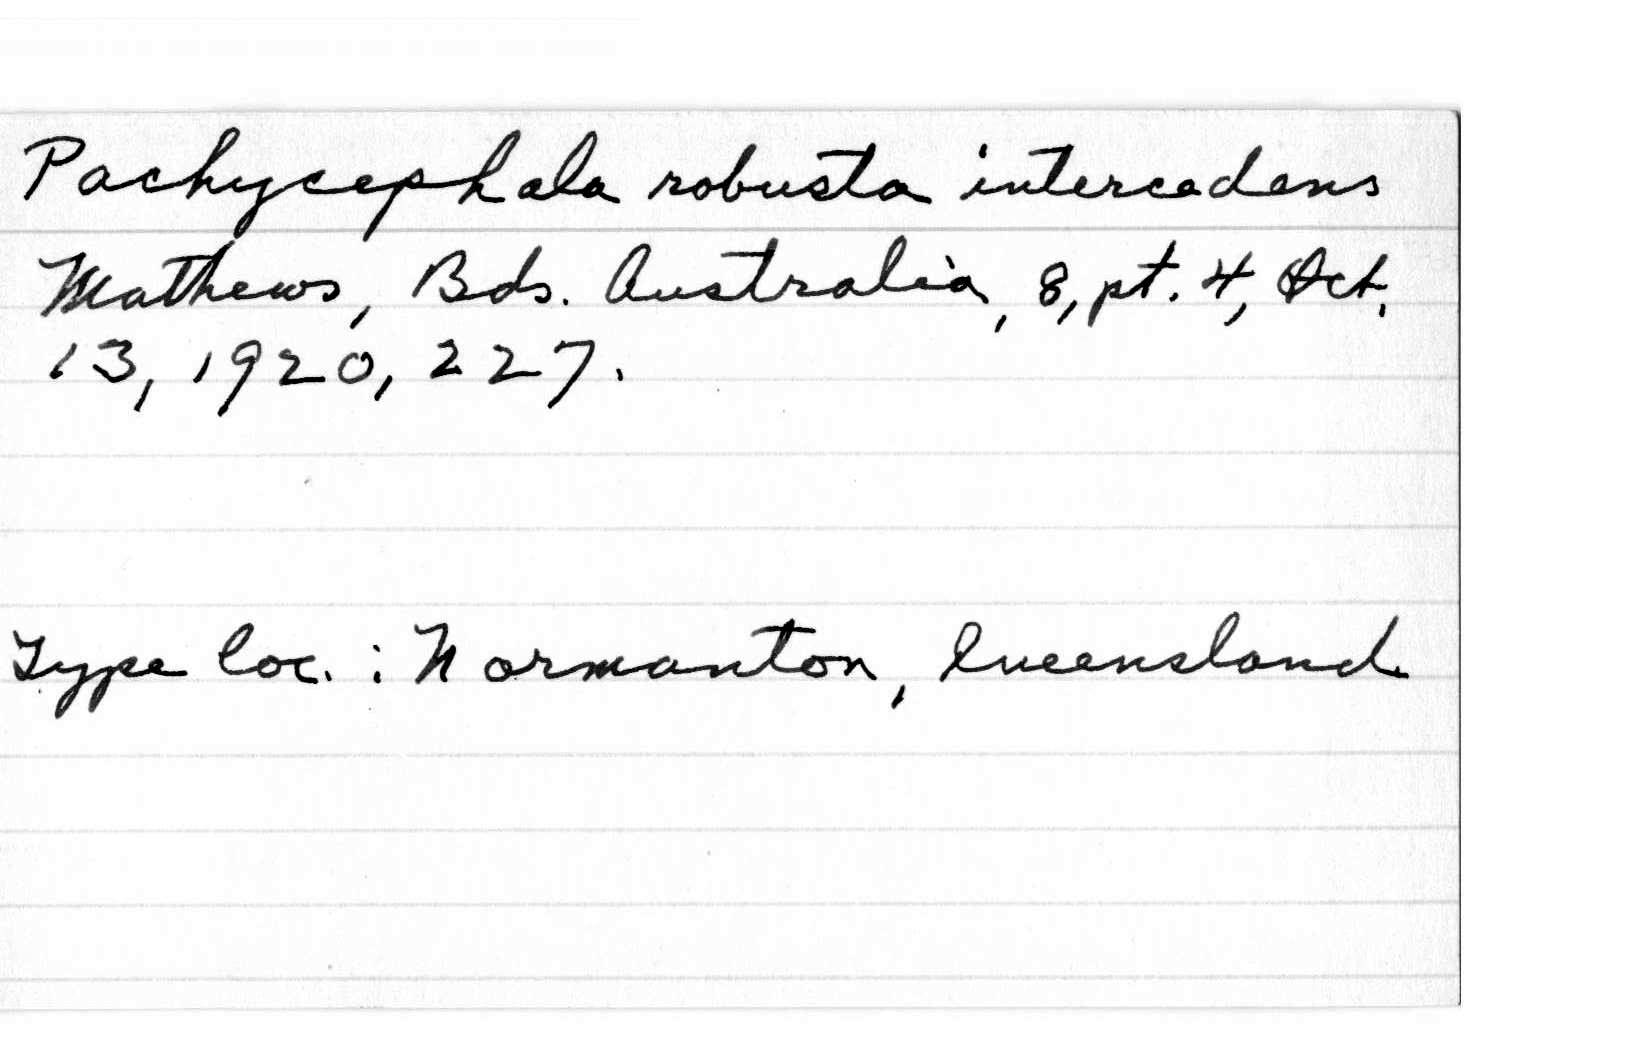 Pachycephala robusta intercedens
Mathews, Bds. Australia, 8, pt. 4, Oct.
13, 1920, 227.
Type loc. : Normanton, Queensland